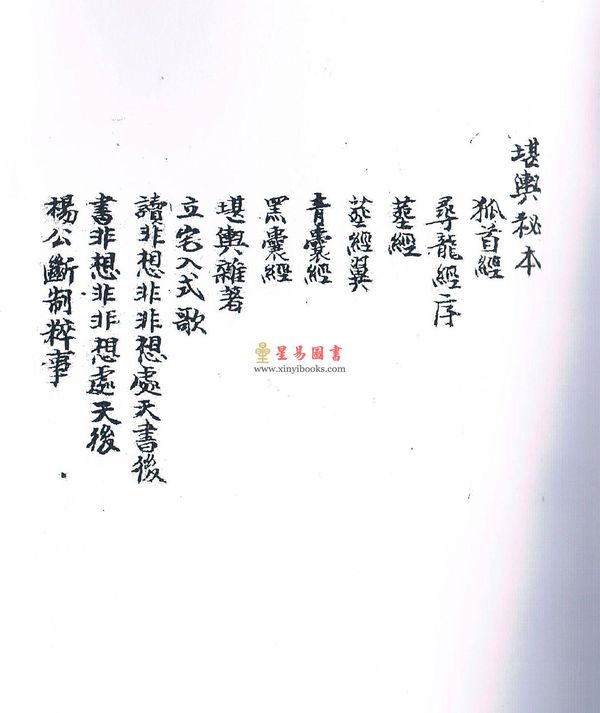 堪輿秘本
狐首經
尋龍經序
葬經
葬經翼
青囊經
黑囊經
堪輿雜著
立宅入式歌
讀非想非非想處天書後
書非想非非想處天後
楊公斷制粹事
星易圖書
www.xinyibooks.com